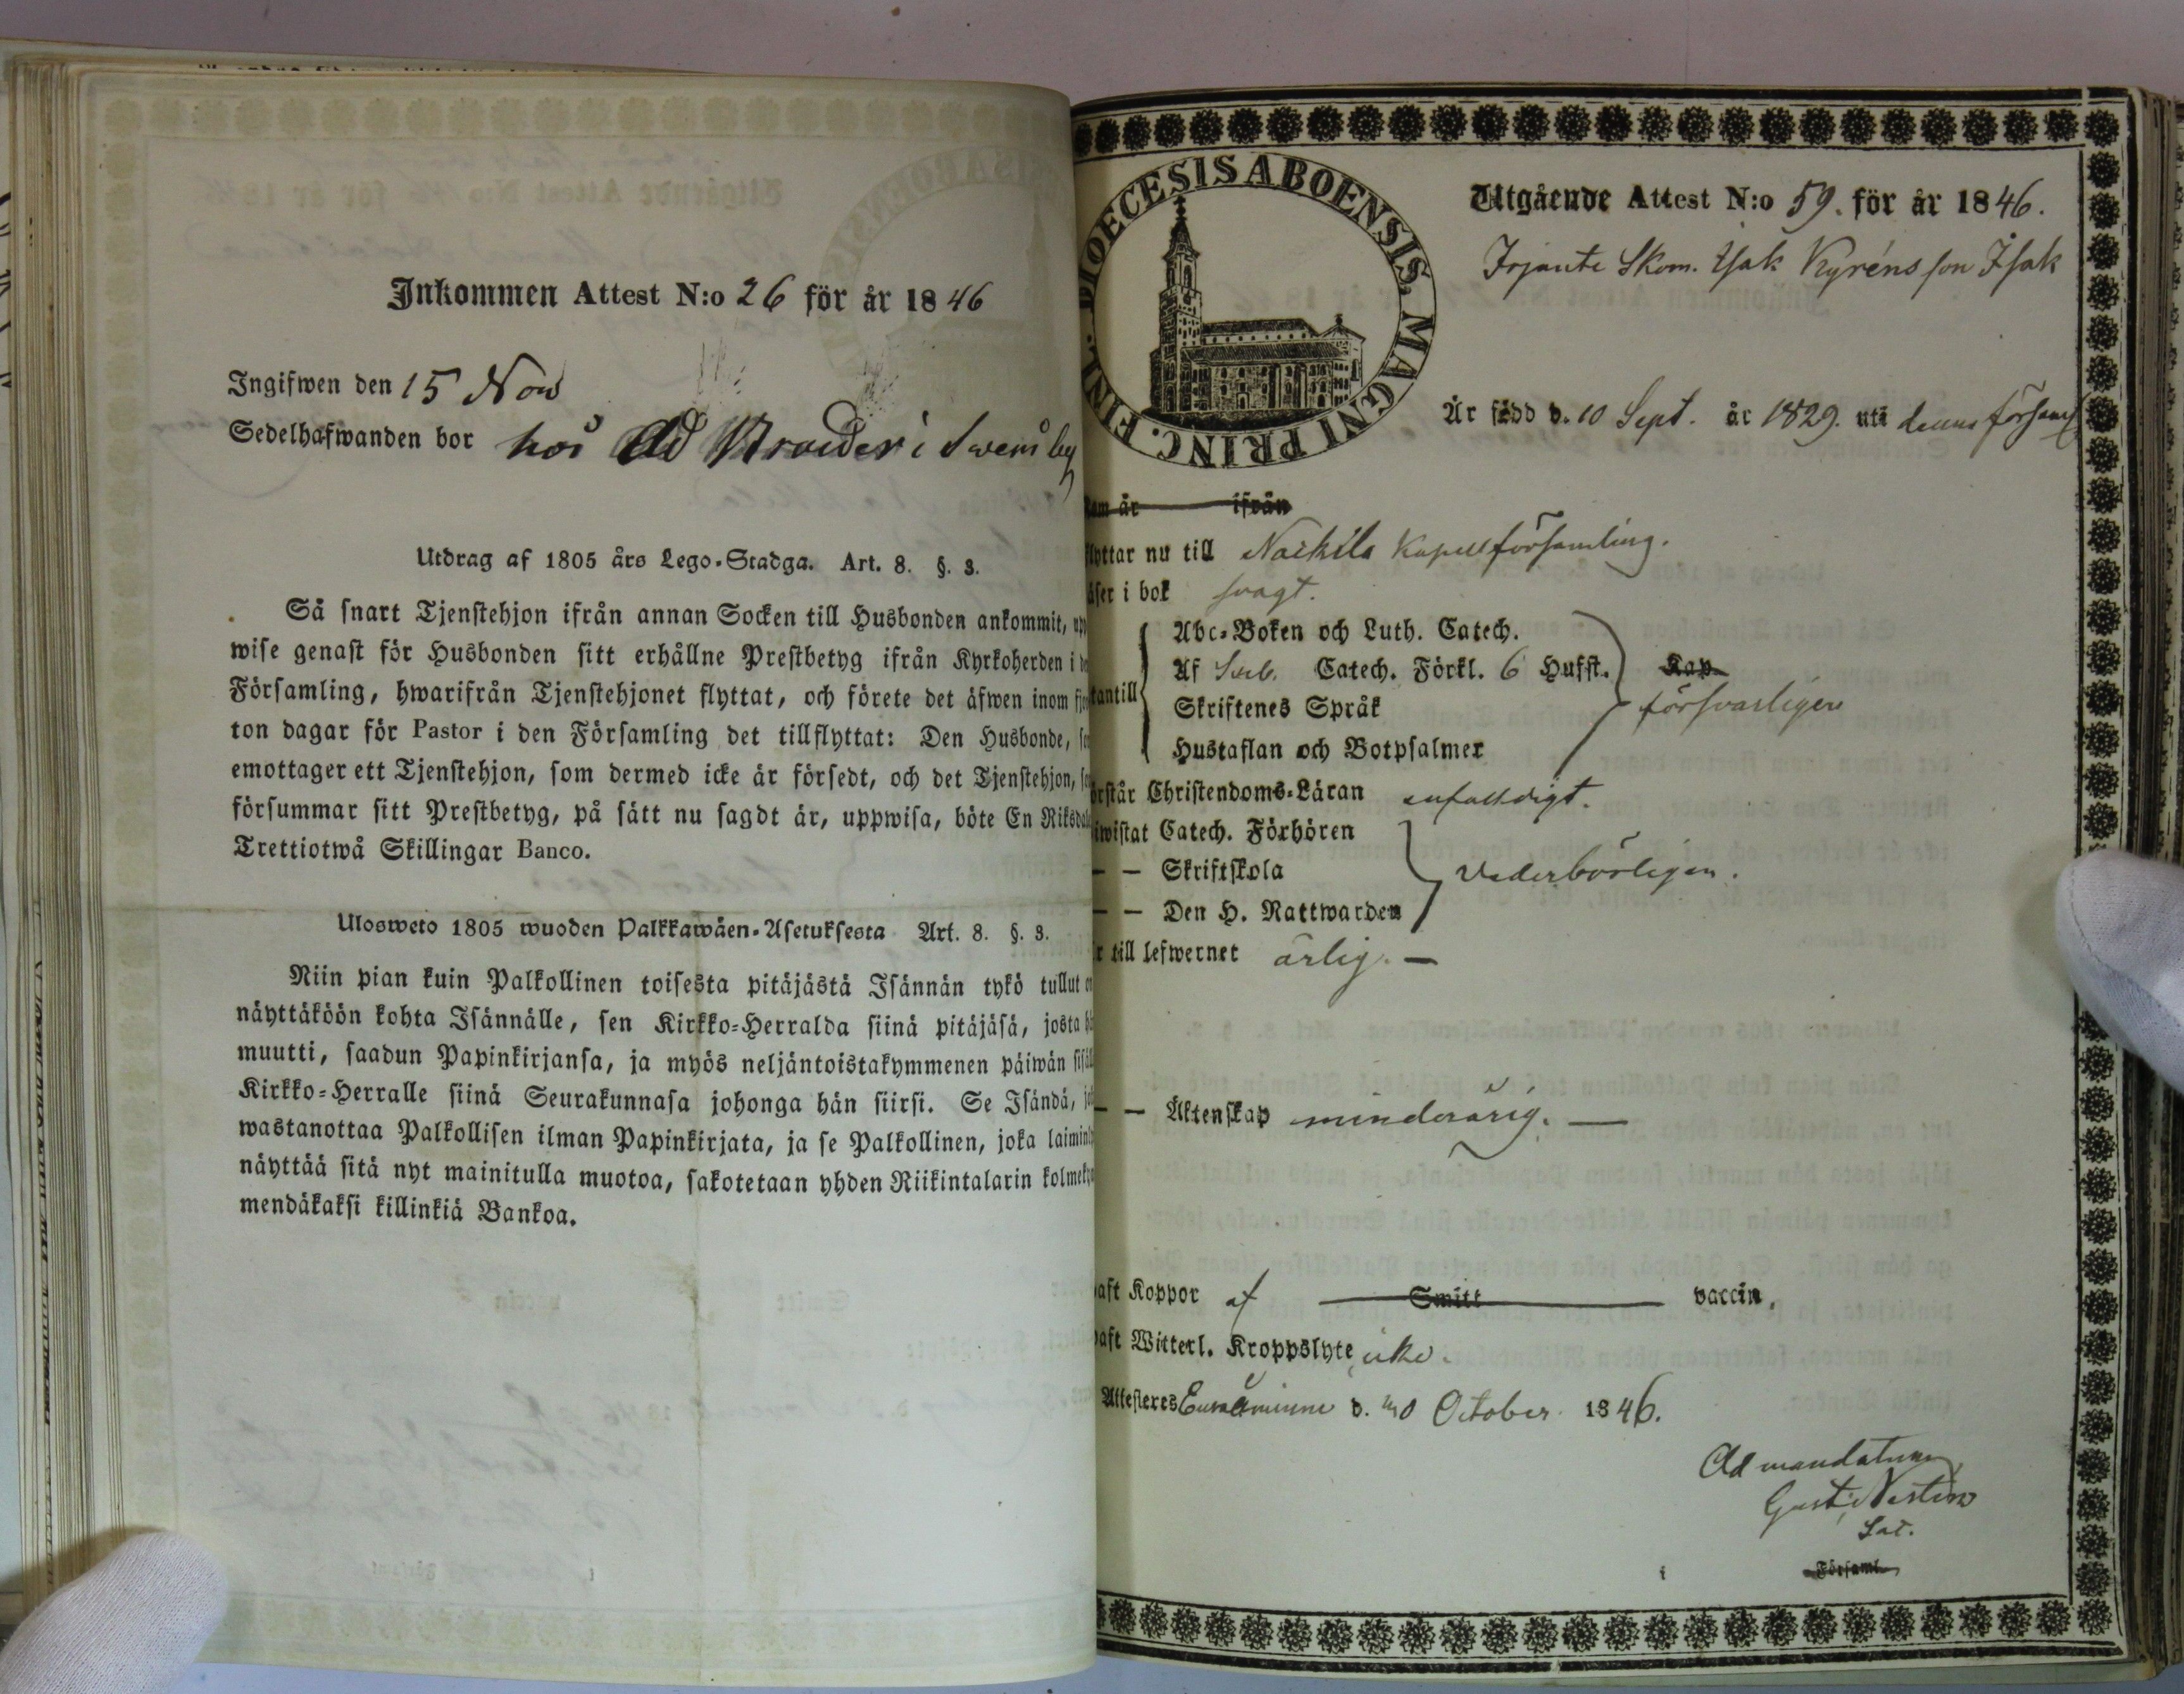 Inkommen Attest N:o 26 för år 1846
Ingifwen den 15 Nov
Sedelhafwanden bor hos i Swensby
Utdrag af 1805 års Lego-Stadga. Art. 8. §. 3.
Så snart Tjenstehjon ifrån annan Socken till Husbonden ankommit, upp
wise genast för Husbonden sitt erhållne Prestbetyg ifrån Kyrkoherden i de
Församling, hwarifrån Tjenstehjonet flyttat, och förete det äfwen inom fjor
ton dagar för Pastor i den Församling det tillflyttat: Den Husbonde, so
emottager ett Tjenstehjon, som dermed icke är försedt, och det Tjenstehjon, so
försummar sitt Prestbetyg, på sätt nu sagdt är, uppwisa, böte En Riksdal
Trettiotwå Skillingar Banco.
Ulosweto 1805 wuoden Palkkawäen-Asetuksesta Art. 8. §. 3.
Niin pian kuin Palkollinen toisesta pitäjästä Isännän tykö tullut on
näyttäköön kohta Isännälle, sen Kirkko-Herralda siinä pitäjäsä, josta hä
muutti, saadun Papinkirjansa, ja myös neljäntoistakymmenen päiwän sisäll
Kirkko-Herralle siinä Seurakunnasa johonga hän siirsi. Se Isändä, jo
wastanottaa Palkollisen ilman Papinkirjata, ja se Palkollinen, joka laiminly
näyttää sitä nyt mainitulla muotoa, sakotetaan yhden Riikintalarin kolmeky
mendäkaksi killinkiä Bankoa.
DIOECESIS ABOENSIS. MAGNI PRINC. FINL.
Utgående Attest N:o 59. för år 1846.
Skom. Isak Kyréns son Isak
Är född d. 10 Sept. år 1829. uti denna församl
om är ifrån
lyttar nu till Nackila Kapellförsamling.
äser i bok svagt.
Abc-Boken och Luth. Catech.
Af Sveb. Catech. Förkl. 6 Hufst. Kap
antill Skriftenes Språk försvarligen
Hustaflan och Botpsalmer
örstår Christendoms-Läran enfaldigt.
iwistat Catech. Förhören
— — Skriftskola vederbörligen.
— — Den H. Nattwarden
r till lefwernet ärlig. —
— — Äktenskap minderårig. —
aft Koppor af Smitt vaccin.
aft Witterl. Kroppslyte icke.
Attesteres Euraåminne d. 30 October 1846.
Ad mandatum
Gust. Nestén
Sac.
i Församl.